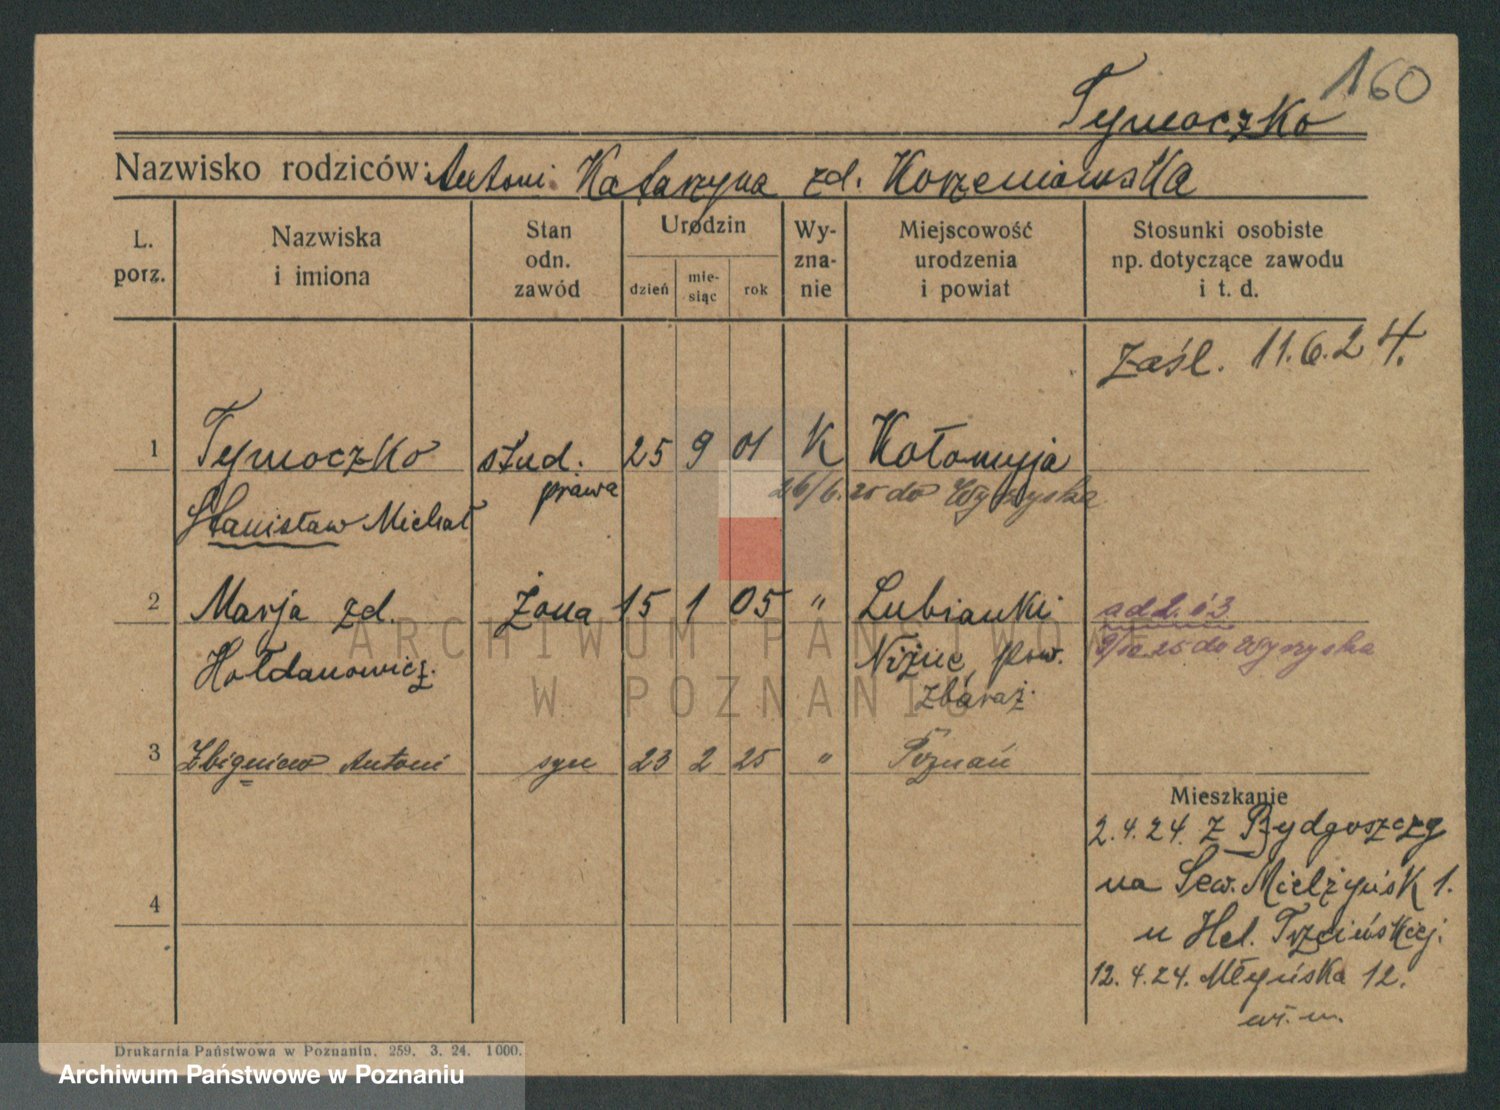 160
Tymoczko
Nazwisko rodziców: Antoni Katarzyna zd. Korzeniowska
L. porz.
Nazwiska i imiona
Stan odn. zawód
Urodzin
dzień
mie-siąc
rok
Wy-zna-nie
Miejscowość urodzenia i powiat
Stosunki osobiste np. dotyczące zawodu i t. d.
Zaśl. 11.6.24.
1 Tymoczko stud. 25 9 01 K Kołomyja
prawa 26/6.25 do Wyrzyska
Stanisław Michał
2 Marja zd. żona 15 1 05 " Lubianki
ad 2. i 3
Hołdanowicz. Niżne pow.
25 do Wyrzyska
Zbaraż.
3 Zbigniew Antoni syn 23 2 25 " Poznań
Mieszkanie
2.4.24. z Bydgoszczy
na Sew. Mielżyńsk 1.
4
u Hel. Trzcińskiej.
12.4.24. Młyńska 12.
Drukarnia Państwowa w Poznaniu. 259. 3. 24. 1000.
ARCHIWUM PAŃSTWOWE
W POZNANIU
Archiwum Państwowe w Poznaniu